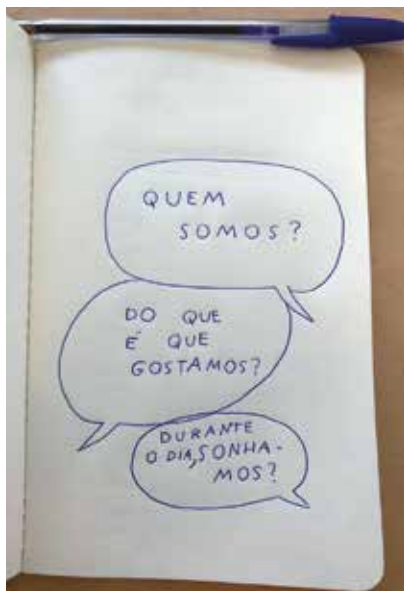 QUEM
SOMOS?
DO QUE
É QUE
GOSTAMOS?
DURANTE
O DIA, SONHA-
MOS?